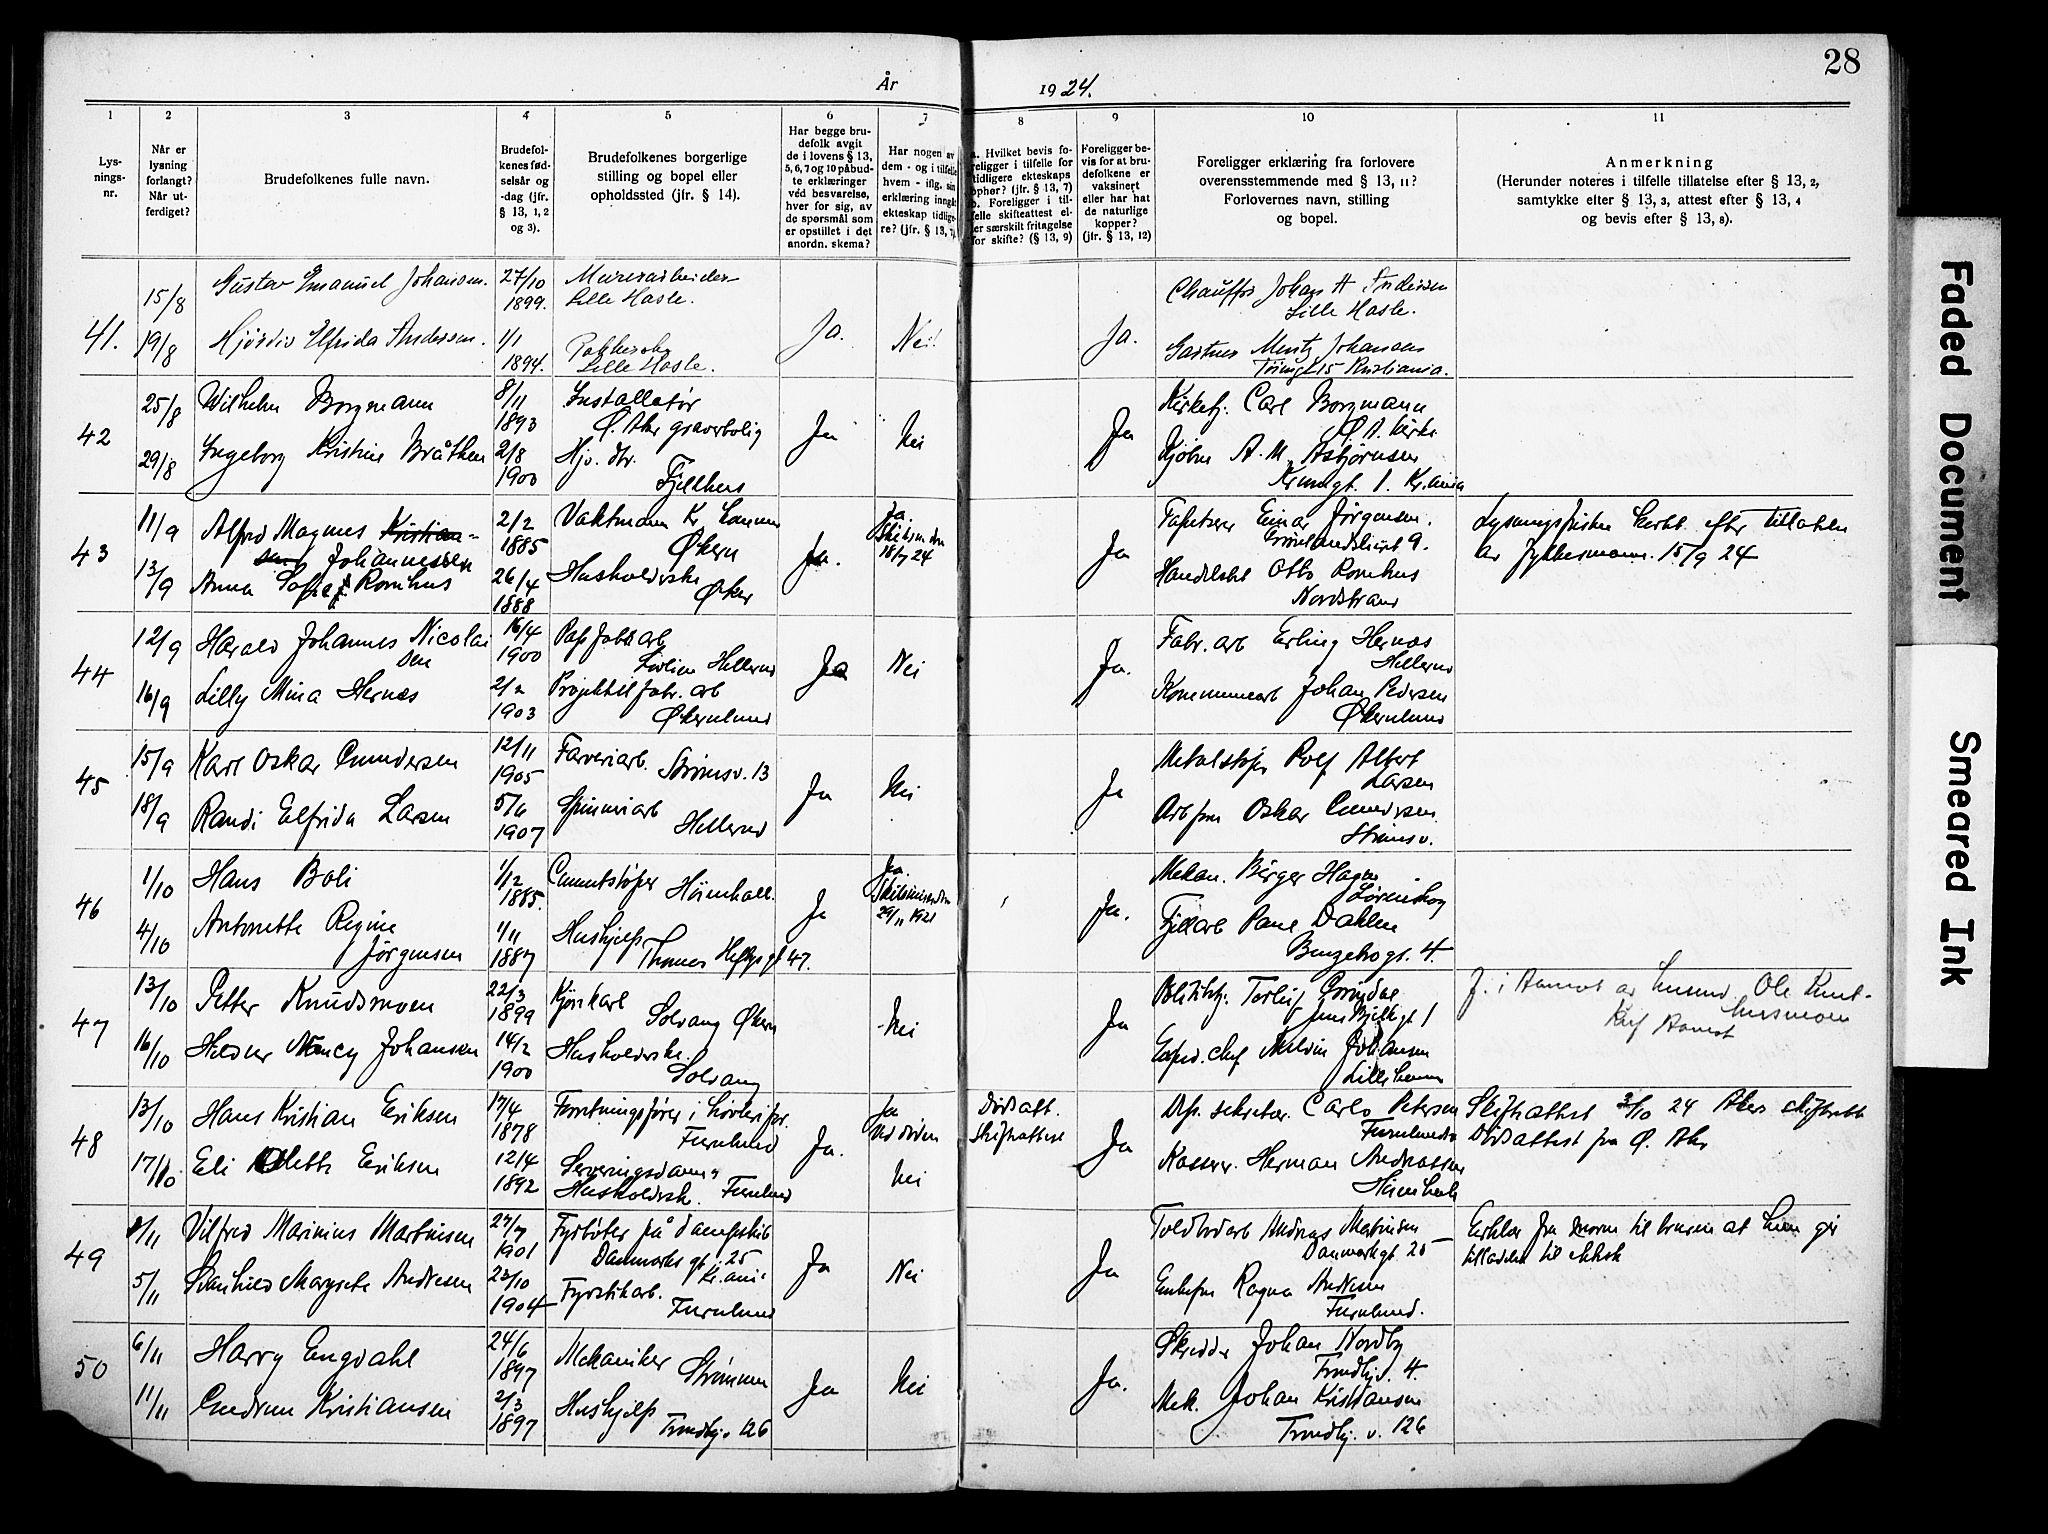 28
År 1924.
1
Lysnings-
nr.
2
Når er
lysning
forlangt?
Når ut-
ferdiget?
3
Brudefolkenes fulle navn.
4
Brudefol-
kenes fød-
selsår og
-dag (jfr.
§ 13, 1, 2
og 3).
5
Brudefolkenes borgerlige
stilling og bopel eller
opholdssted (jfr. § 14).
6
Har begge bru-
defolk avgit
de i lovens § 13,
5, 6, 7 og 10 påbud-
te erklæringer
ved besvarelse,
hver for sig, av
de spørsmål som
er opstillet i det
anordn. skema?
7
Har nogen av
dem - og i tilfelle
hvem - iflg. sin
erklæring inngåt
ekteskap tidlige-
re? (jfr. § 13, 7)
8
a. Hvilket bevis fo-
religger i tilfelle for
tidligere ekteskaps
ophør? (jfr. § 13, 7)
b. Foreligger i til-
felle skifteattest el-
ler særskilt fritagelse
for skifte? (§ 13, 9)
9
Foreligger be-
vis for at bru-
defolkene er
vaksinert
eller har hat
de naturlige
kopper?
(jfr. § 13, 12)
10
Foreligger erklæring fra forlovere
overensstemmende med § 13, 11?
Forlovernes navn, stilling
og bopel.
11
Anmerkning
(Herunder noteres i tilfelle tillatelse efter § 13, 2,
samtykke efter § 13, 3, attest efter § 13, 4
og bevis efter § 13, 8).
41.
15/8
19/8
Gustav Emanuel Johansen.
Hjørdis Elfrida Andersen.
27/10
1899.
1/1
1894.
Murerarbeider
Lille Hasle.
Lille Hasle.
Ja.
Nei.
Ja.
Chauffør Johan H Andersen
Lille Hasle.
Gartner Johansen
15 Kristiania.
42
25/8
29/8
Wilhelm Borgmann
Ingeborg Kristine Bråthen
8/11
1893
2/8
1900
Installatør
Ø. Aker graverbolig
Hjv. dtr.
Fjellhus
Ja
Nei
Ja
Kirketj. Carl Borgmann
Ø. A. kirke
Kjøbm A. M. Asbjørnsen
1. Kr.ania
43
11/9
13/9
Alfred Magnus Kristian-
sen Johannessen
Anna Sofie Romhus
2/2
1885
26/4
1888
Vaktmann Kr
Økern
Husholderske
Øker
Ja.
Ja
18/7 24
Ja
Einar Jørgensen.
Grønlandsleiret 9.
Otto Romhus
Nordstrand
Lysningsfristen efter tillatelse
av fylkesmann. 15/9 24
44
12/9
16/9
Harald Johannes Nicolai
sen
Lilly Mina Hernæs
16/4
1900
2/2
1903
Hellerud
Projektilfabr. arb
Økernlund
Ja
Nei
Ja.
Fabr. arb Erling Hernæs
Hellerud
Kommunearb Johan Pedersen
Økernlund
45
15/9
18/9
Karl Oskar Gundersen
Randi Elfrida Larsen
12/11
1905
5/6
1907
Farveriarb. Strømsv. 13
Spinneriarb
Hellerud
Ja
Nei
Ja
Metalstøper Rolf Albert
Larsen
Oskar Gundersen
Strømsv.
46
1/10
4/10
Hans Boli
Antonette Regine
Jørgensen
1/12
1885.
1/11
1887
Cementstøper Høienhall.
Hushjelp
Thomas Heftyes gt 47.
Ja
Ja.
29/11 1921
Ja.
Mekan. Birger Hagen
Lørenskog
Paul Dahlen
4.
47
13/10
16/10
Petter Knudsmoen
Hildur Nancy Johansen
22/3
1899
14/2
1900
Kjørekarl
Solvang Økern
Husholderske.
Solvang
Nei
Ja
Politibtj. Torleif
Jens Bjelkes gt 1
Johansen
Lillehammer
48
13/10
17/10
Hans Kristian Eriksen
Eli Olette Eriksen
17/4
1878
12/4
1892
Forretningsfører i
Furulund
Serveringsdame
Husholdersk. Furulund
Ja.
Ja
ved døden
Nei
Dødsatt.
Skifteattest
Ja
sekretær. Carlo Petersen
Furulund
Kasserer. Herman Andreassen
Skifteattest 3/10 24 Aker skifterett
Dødsattest fra Ø. Aker
49
5/11
Vilfred Marinius Martinsen
Svanhild Margrete Andresen
27/7
1901
23/10
1904
Fyrbøter på dampskib
Danmarks gt. 25
Kr.ania
Fyrstikarb.
Furulund
Ja
Nei
Ja
Andreas Martinsen
Danmarksgt. 25
Ragna Andresen
Furulund.
Erklær. fra moren til bruden at hun gir
tilladelse til ektesk
50
6/11
11/11
Harry Engdahl
Gudrun Kristiansen
24/6
1897
2/3
1897
Mekaniker
Strømmen
Hushjelp
Trondhj. v 126
Ja
Nei
Ja.
Skredder Johan Nordby
Trondhj.v. 4.
Mek. Johan Kristiansen
Trondhj. v. 126
Faded Document
Smeared Ink